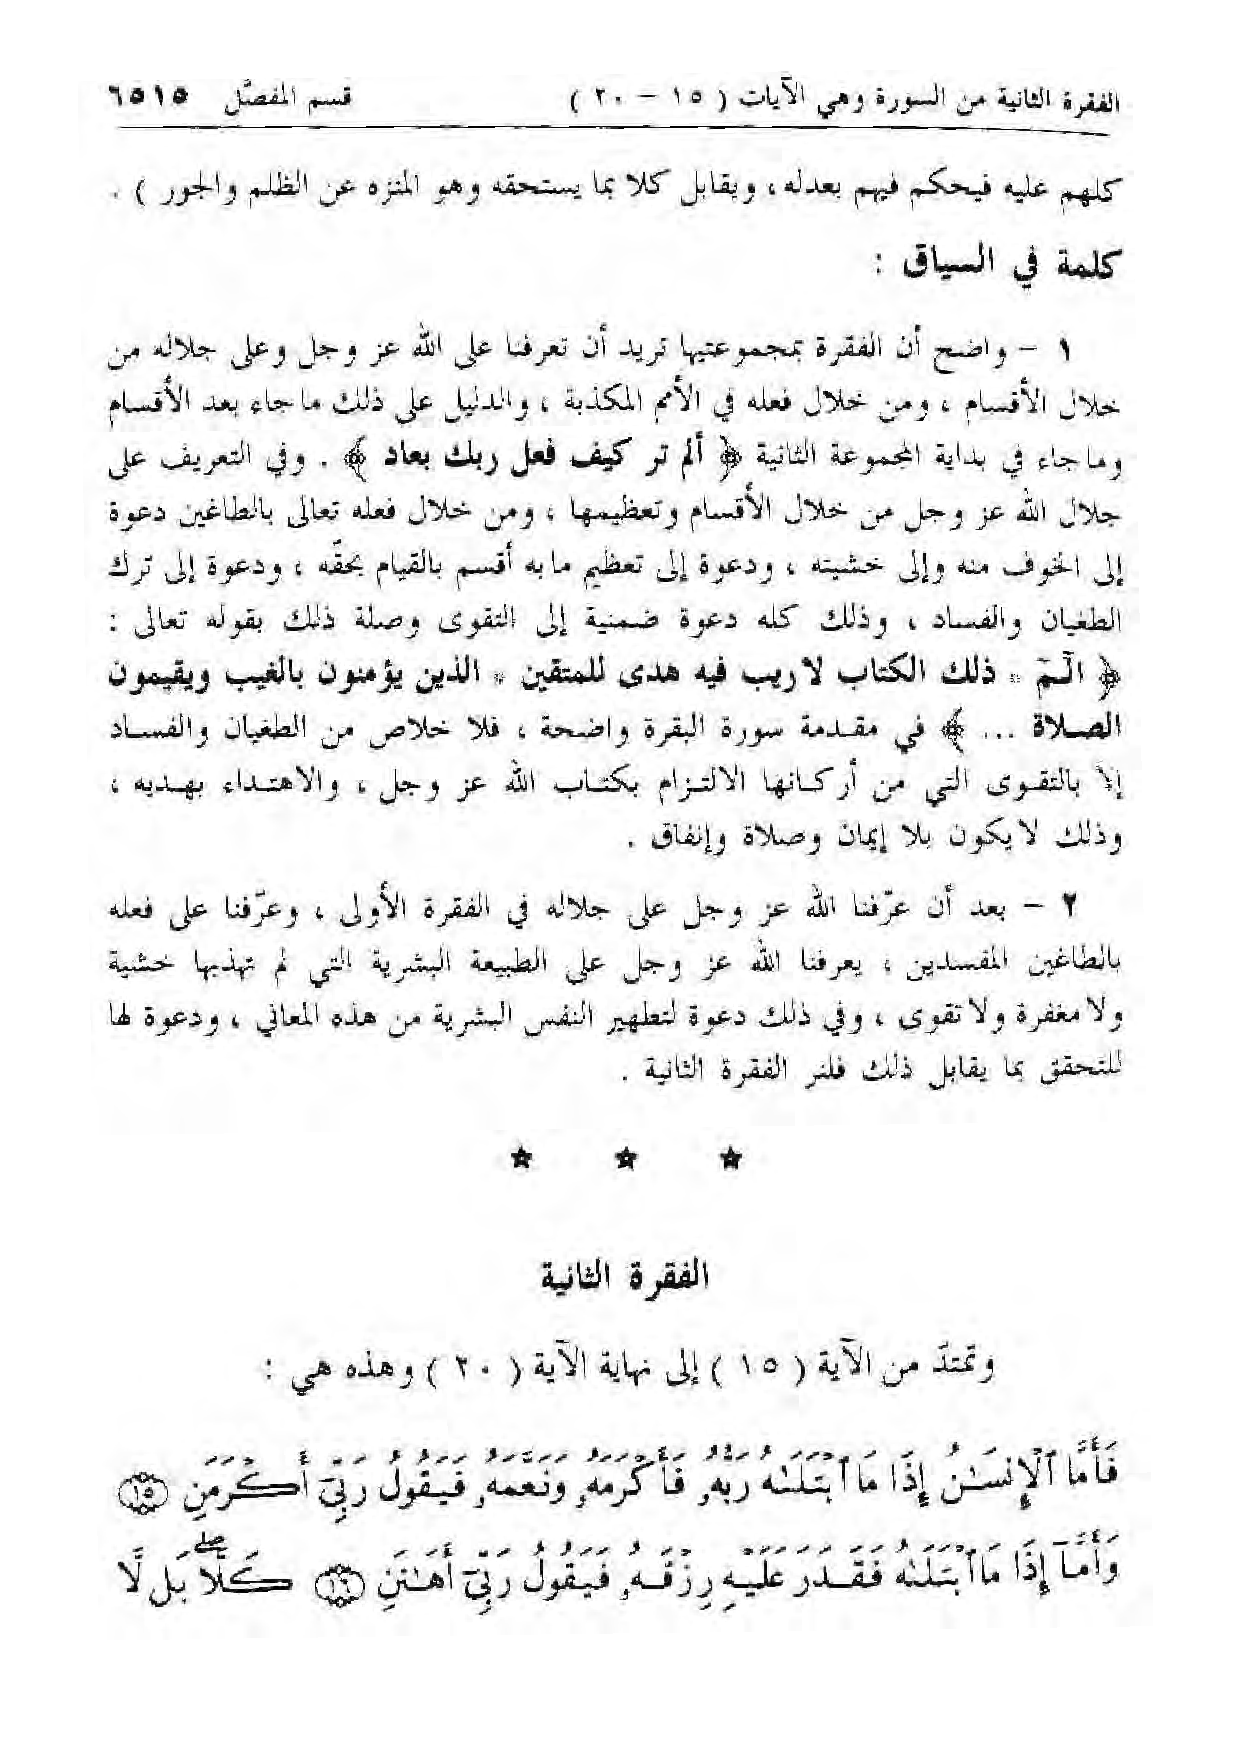 الفقرة الثانية من السورة وهي الآيات ( ١٥ – ٢٠ ) قسم المفصَّل ٦٥١٥
كلهم عليه فيحكم فيهم بعدله ، ويقابل كلا بما يستحقه وهو المنزه عن الظلم والجور ) .
كلمة في السياق :
١ – واضح أن الفقرة بمجموعتيها تريد أن تعرفنا على الله عز وجل وعلى جلاله من
خلال الأقسام ، ومن خلال فعله في الأمم المكذبة ، والدليل على ذلك ما جاء بعد الأقسام
وما جاء في بداية المجموعة الثانية ﴿ ألم تر كيف فعل ربك بعاد ﴾ . وفي التعريف على
جلال الله عز وجل من خلال الأقسام وتعظيمها ، ومن خلال فعله تعالى بالطاغين دعوة
إلى الخوف منه وإلى خشيته ، ودعوة إلى تعظيم ما به أقسم بالقيام بحقّه ، ودعوة إلى ترك
الطغيان والفساد ، وذلك كله دعوة ضمنية إلى التقوى وصلة ذلك بقوله تعالى :
﴿ الٓمٓ * ذلك الكتاب لا ريب فيه هدى للمتقين * الذين يؤمنون بالغيب ويقيمون
الصلاة ... ﴾ في مقدمة سورة البقرة واضحة ، فلا خلاص من الطغيان والفساد
إلا بالتقوى التي من أركانها الالتزام بكتاب الله عز وجل ، والاهتداء بهديه ،
وذلك لا يكون بلا إيمان وصلاة وإنفاق .
٢ – بعد أن عرّفنا الله عز وجل على جلاله في الفقرة الأولى ، وعرّفنا على فعله
بالطاغين المفسدين ، يعرفنا الله عز وجل على الطبيعة البشرية التي لم تهذبها خشية
ولا مغفرة ولا تقوى ، وفي ذلك دعوة لتطهير النفس البشرية من هذه المعاني ، ودعوة لها
للتحقق بما يقابل ذلك فلنر الفقرة الثانية .
★ ★ ★
الفقرة الثانية
وتمتدّ من الآية ( ١٥ ) إلى نهاية الآية ( ٢٠ ) وهذه هي :
فَأَمَّا ٱلْإِنسَـٰنُ إِذَا مَا ٱبْتَلَىٰهُ رَبُّهُۥ فَأَكْرَمَهُۥ وَنَعَّمَهُۥ فَيَقُولُ رَبِّىٓ أَكْرَمَنِ ١٥
وَأَمَّآ إِذَا مَا ٱبْتَلَىٰهُ فَقَدَرَ عَلَيْهِ رِزْقَهُۥ فَيَقُولُ رَبِّىٓ أَهَـٰنَنِ ١٦ كَلَّاۖ بَل لَّا